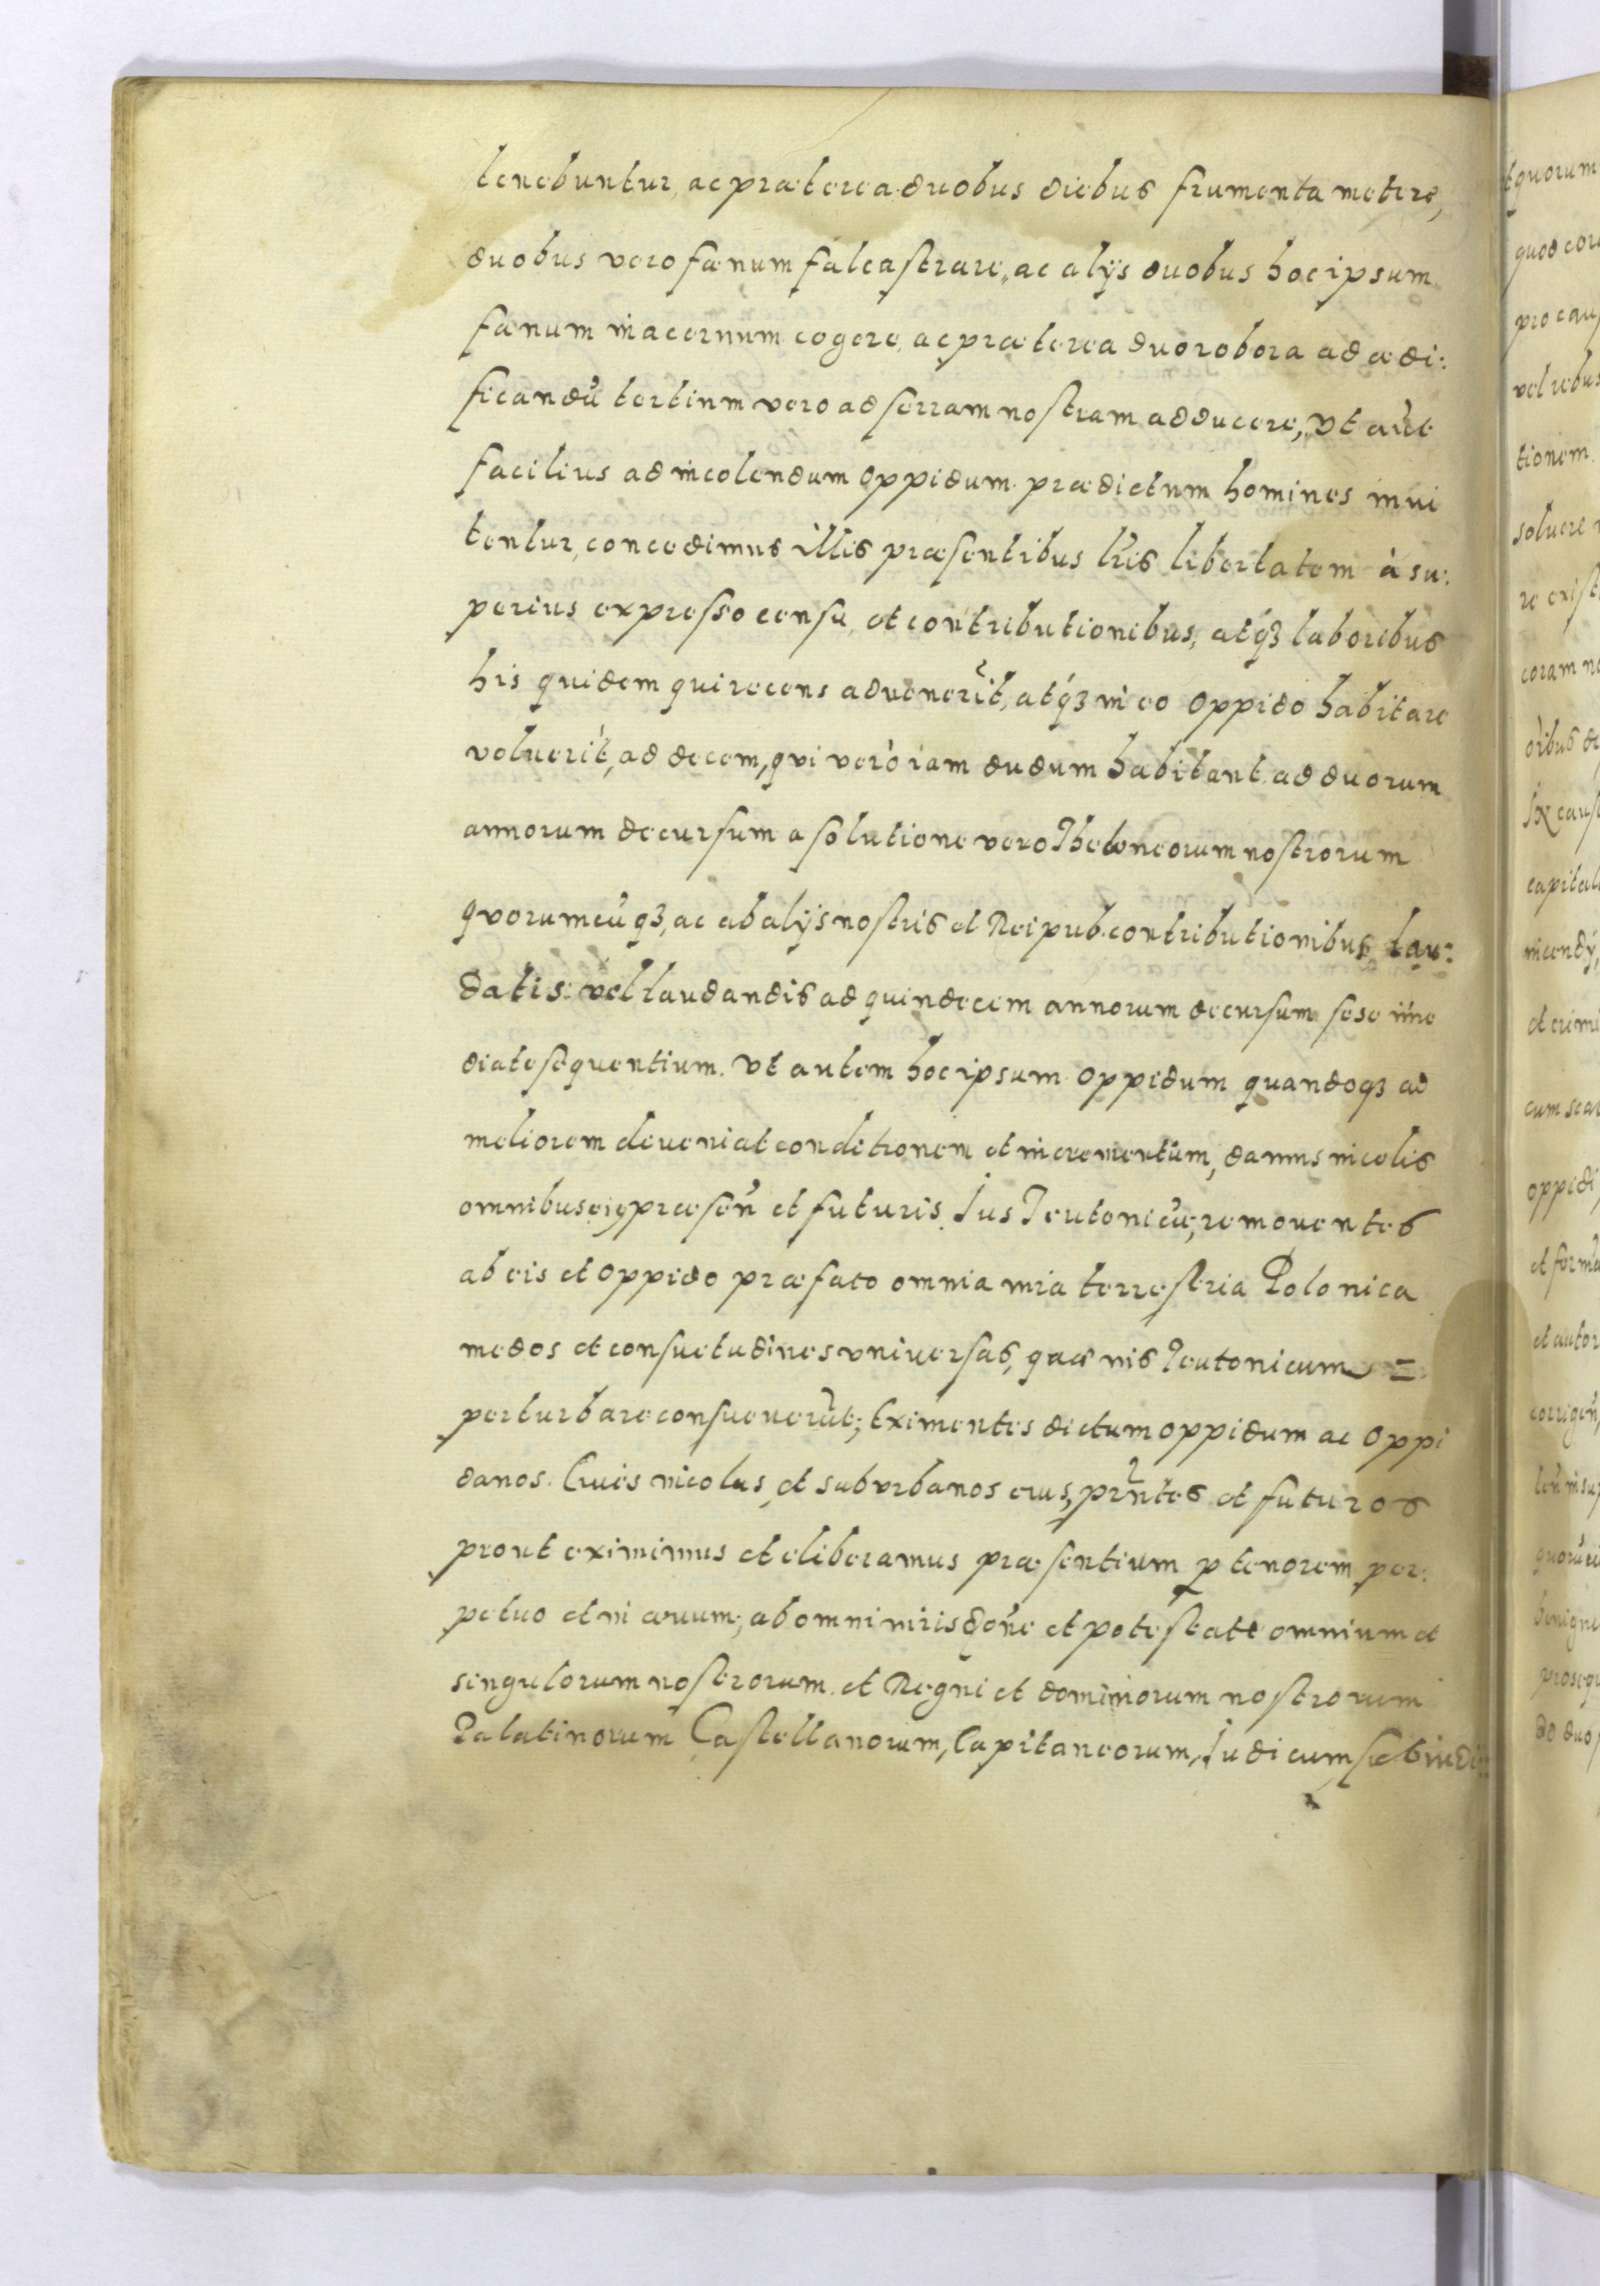 tenebuntur, ac præterea duobus diebus frumenta metere,
duobus vero fænum falcastrare, ac alijs duobus hoc ipsum
fænum in acernum cogere, ac præterea duo robora ad ædi:
ficandũ tertium vero ad serram nostram adducere, Vt aũt
facilius ad incolendum Oppidum prædictum homines inui
tentur, concedimus illis præsentibus lris libertatem à su:
perius expresso censu, et contributionibus, atq3 laboribus
his quidem qui recens aduenerĩt, atq3 in eo Oppido habitare
voluerĩt, ad decem, qui verò iam dudum habitant ad duorum
annorum decursum a solutione vero Theloneorum nostrorum
quorumcũq3, ac ab alijs nostris et Reipub. contributionibus, lau:
datis vel laudandis ad quindecem annorum decursum sese ime
diate sequentium. Vt autem hoc ipsum Oppidum quandoq3 ad
meliorem deueniat conditionem et incrementum, damus incolis
omnibus ei9 præseñ et futuris Ius Teutonicũ, remouentes
ab eis et Oppido præfato omnia iuria terrestria Polonica
modos et consuetudines vniuersas, quæ ius Teutonicum =
perturbare consueuerũt; Eximentes dictum Oppidum ac Oppi
danos. Ciues incolas, et suburbanos eius, pñtes et futuros
prout eximimus et eliberamus præsentium p tenorem per:
petuo et in æuum; ab omni iurisdõne et potestate omnium et
singulorum nostrorum et Regni et dominiorum nostrorum
Palatinorum Castellanorum, Capitaneorum, Iudicum, Subiudi: